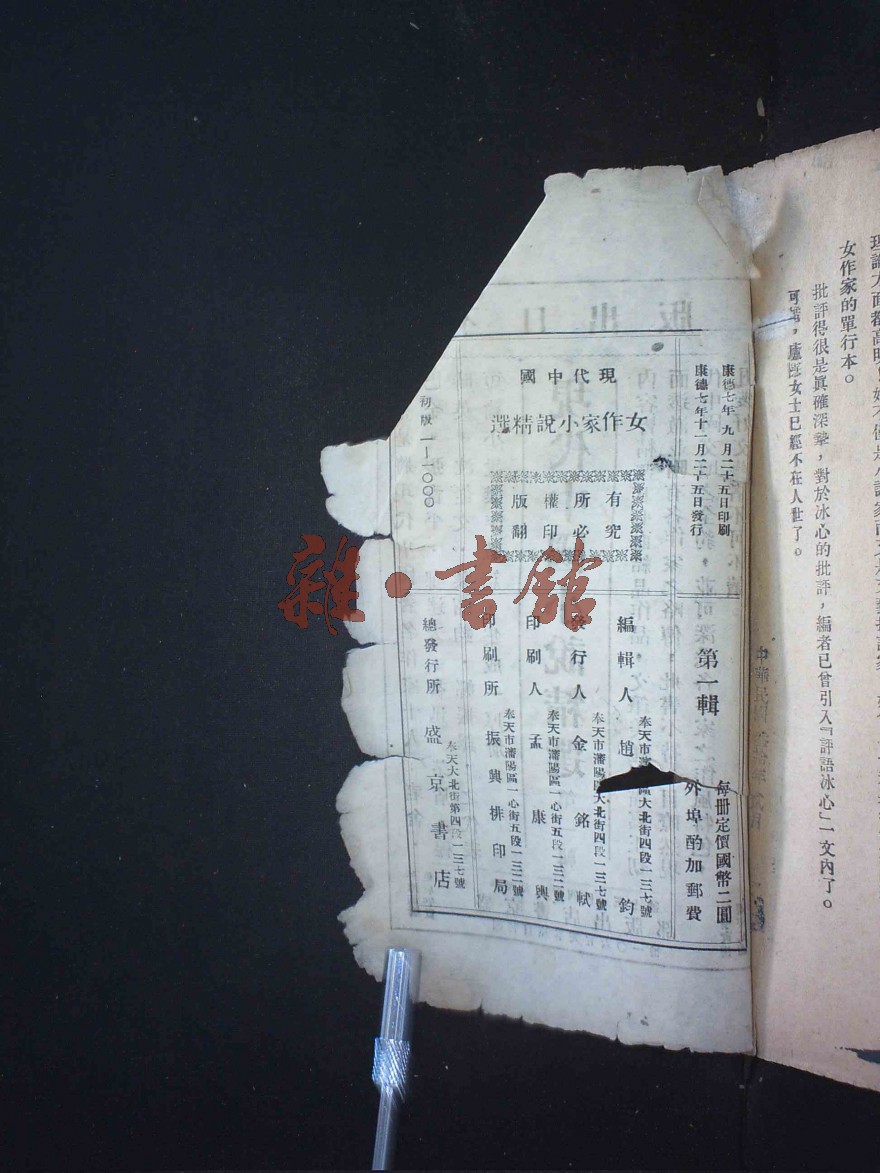 理論方面都高明
女作家的單行本。
批評得很是眞確深摯,對於冰心的批評,編者已曾引入『評語冰心』一文內了。
可惜,廬隱女士已經不在人世了。
康德七年九月二十五日印刷
康德七年十一月二十五日發行
第一輯
每冊定價國幣二圓
外埠酌加郵費
現代中國
女作家小說精選
有究
所必
權印
版翻
初版 一—一〇〇〇
奉天市瀋陽區大北街四段一三七號
編輯人 趙 鈞
奉天市瀋陽區大北街四段一三七號
發行人 金銘軾
奉天市瀋陽區一心街五段一三二號
印刷人 孟康興
奉天市瀋陽區一心街五段一三二號
印刷所 振興排印局
奉天大北街第四段一三七號
總發行所 盛京書店
雜·書館
中華民國